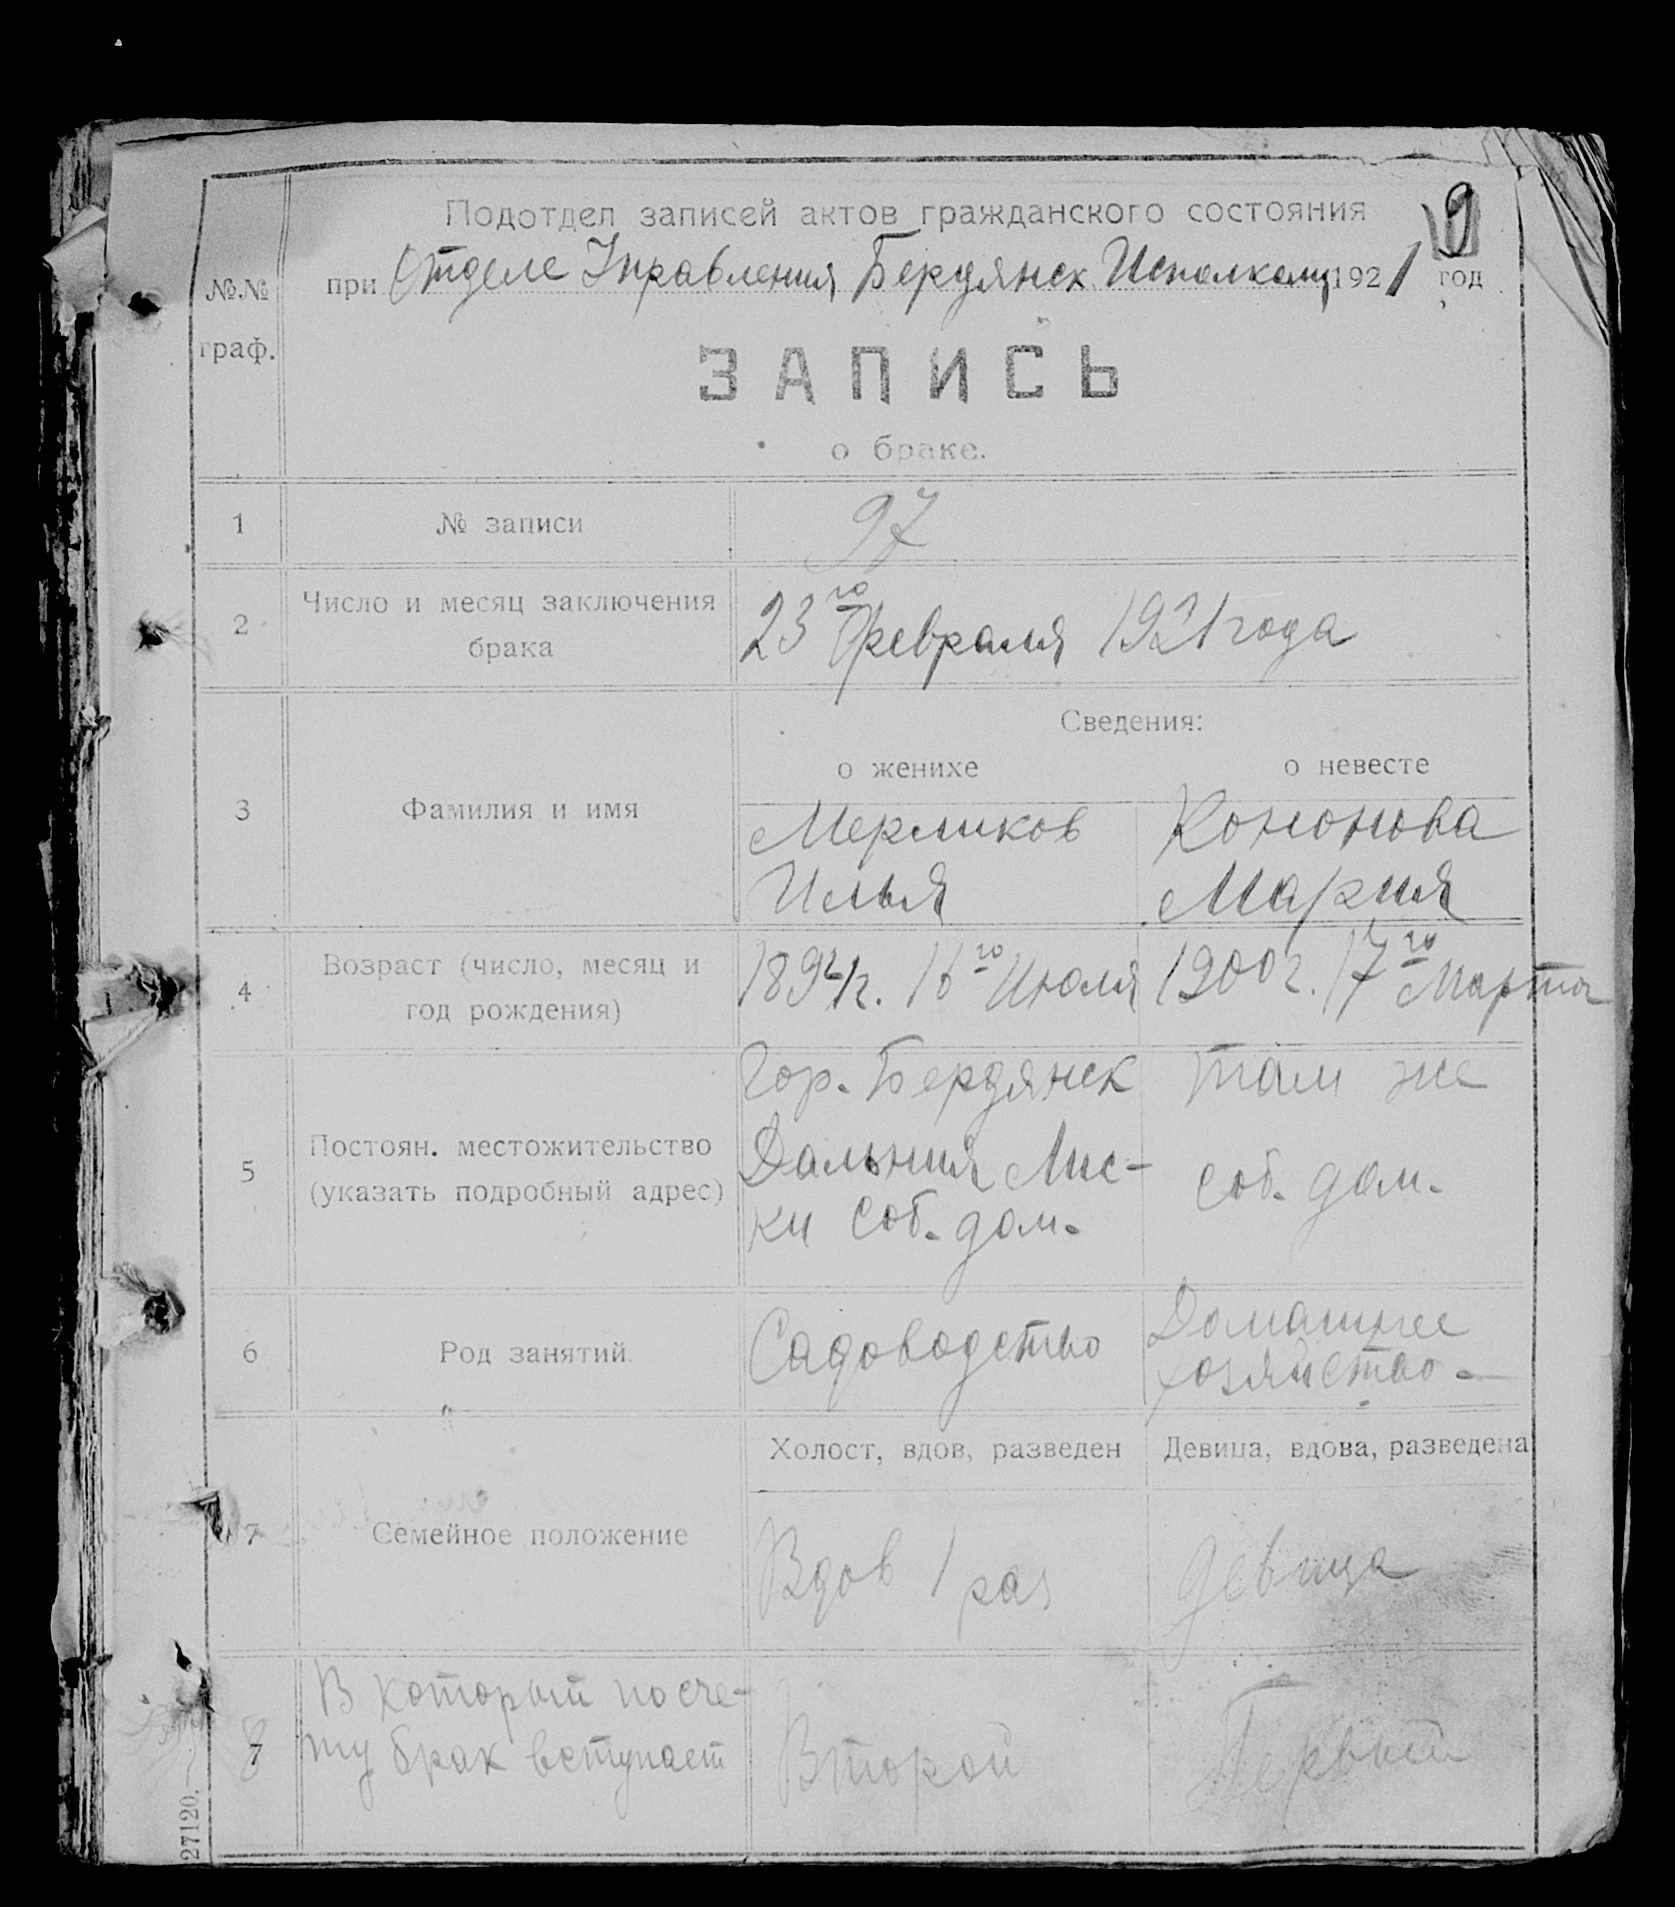 9
Подотдел записей актов гражданского состояния
№№ граф.
при Отделе Управления Бердянск. Исполкома 1921 год
ЗАПИСЬ
о браке.
1 № записи 97
2 Число и месяц заключения брака
23го Февраля 1921 года
Сведения:
о женихе о невесте
3 Фамилия и имя
Мерликов Кононова
Илья Мария
4 Возраст (число, месяц и год рождения)
16го Июля 1900 г. 17го Марта
5 Постоян. местожительство
(указать подробный адрес)
Гор. Бердянск там же
Дальния Лис-
ки соб. дом. соб. дом.
6 Род занятий
Садоводство Домашнее
хозяйство
Холост, вдов, разведен Девица, вдова, разведена
7 Семейное положение
Вдов 1 раз девица
8 В который по сче-
ту брак вступает
Второй Первый
27120.